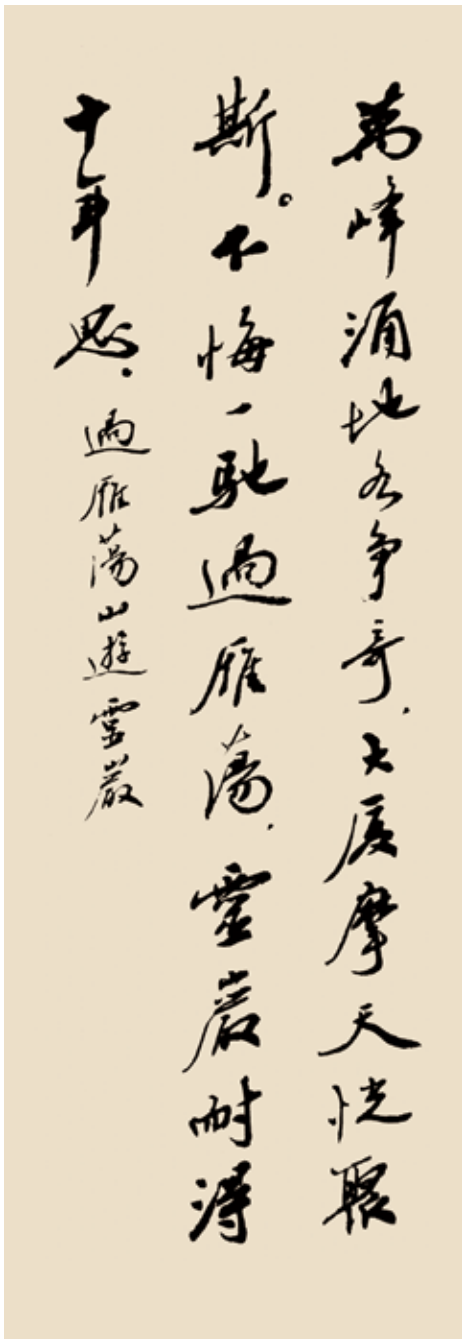 萬峰涌地各争奇，大厦摩天恍聚
斯。不悔一馳過雁蕩，靈巖耐得
十年思。過雁蕩山遊靈巖